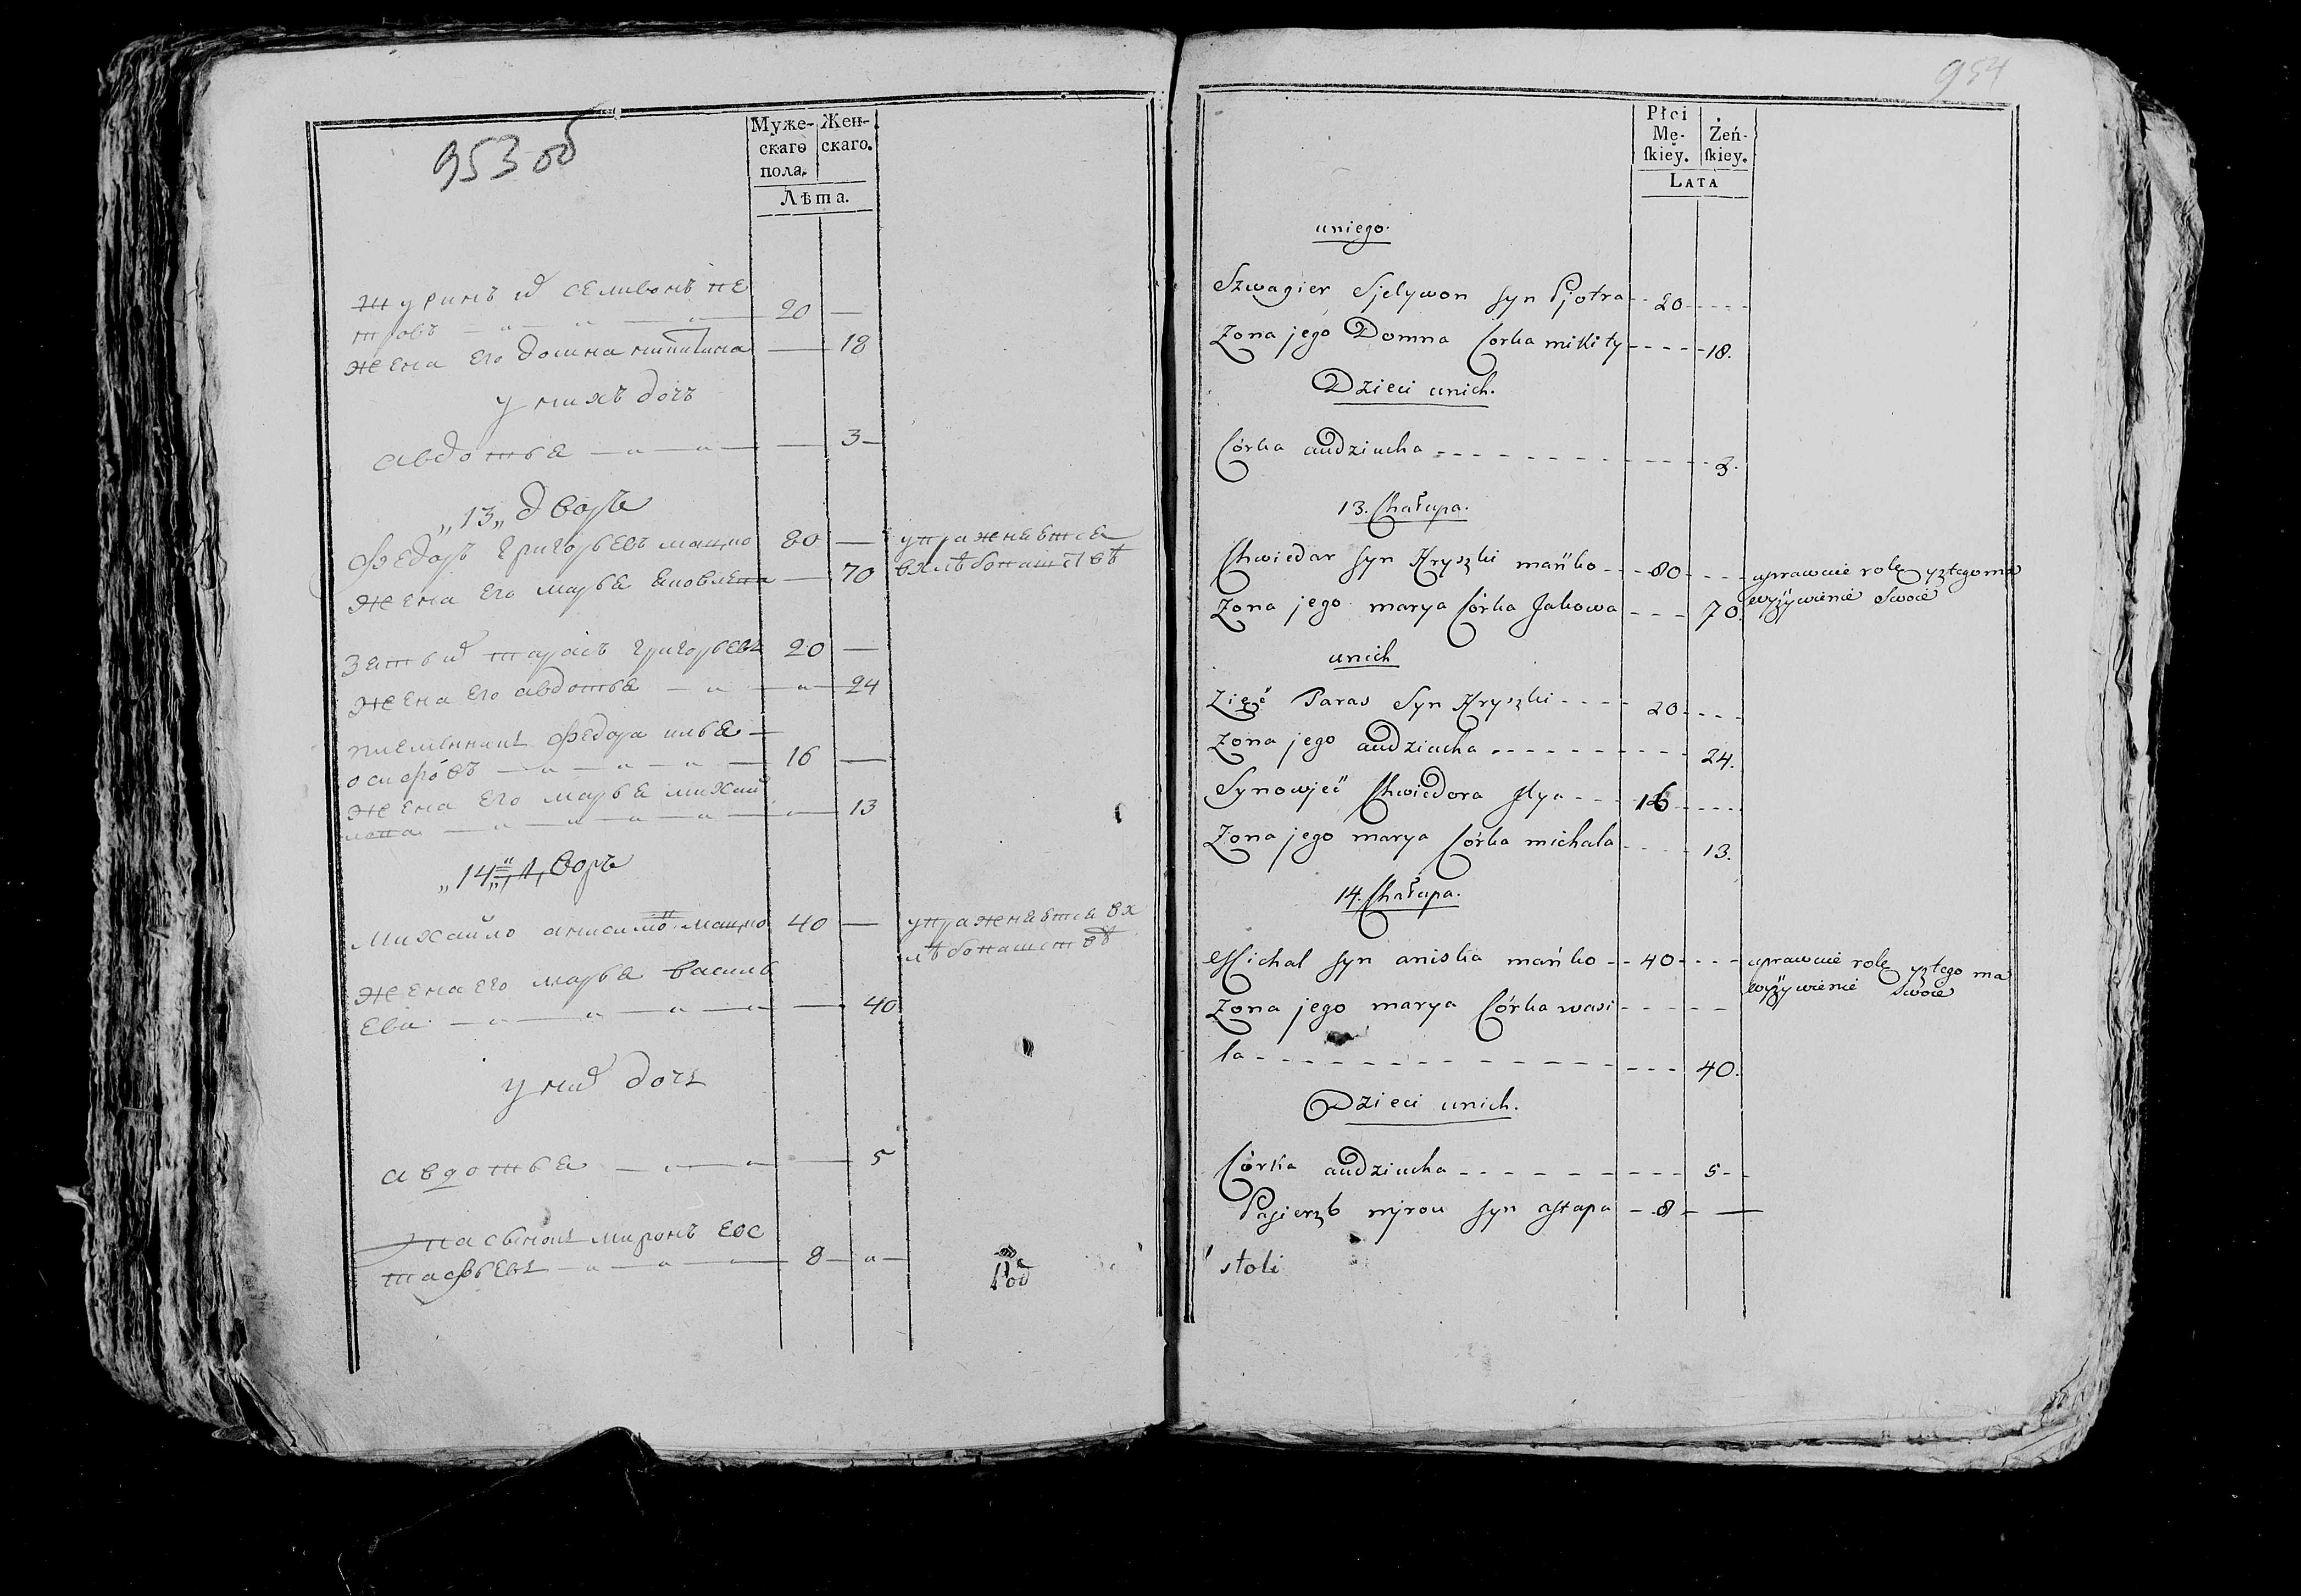 953 об
Муже-
скаго
пола.
Жен-
скаго.
Лѣта.
Шуринъ ій селивонъ пе
тровъ 20 —
жена его домна никитина — 18
у нихъ дочь
авдотьа — 3
„13„ дворъ
Федоръ григорьевъ манко 80 — упражнается
вхлѣбопашствѣ
жена его марьа аковлева — 70
зять ій тарасъ григорьевъ 20 —
жена его авдотьа — 24
племенникъ федора ильа
осифовъ 16 —
жена его марьа михай
лова — 13
„14„ дворъ
Михайло анисимо манко 40 — упражнается вх
лѣбопашствѣ
жена его марьа василь
ева — 40
у ній дочь
авдотьа — 5
пасынокъ миронъ евс
тафьевъ 8
954
Płci
Mę-
ſkiey.
Żeń-
ſkiey.
LATA
uniego.
Szwagier Sjelywon syn Pjotra 20
Zona jego Domna Corka mikity 18.
Dzieci unich.
Córka audziucha 3.
13. Chałupa.
Chwiedar syn Hryszki mańko 80 uprawuie rolę yztego ma
wyżywienie Swoie
Zona jego marya Córka Jakowa 70.
unich
Zięć Taras Syn Hryszki 20
Zona jego audziucha 24.
Synowjec Chwiedora Jlya 16
Zona jego marya Córka michala 13.
14. Chałupa.
Michal syn aniska mańko 40 uprawuie rolę yztego ma
wyżywienie Swoie
Zona jego marya Córka wasi
la 40.
Dzieci unich.
Córka audziucha 5
Pasierzb myron syn astapa 8
stoli